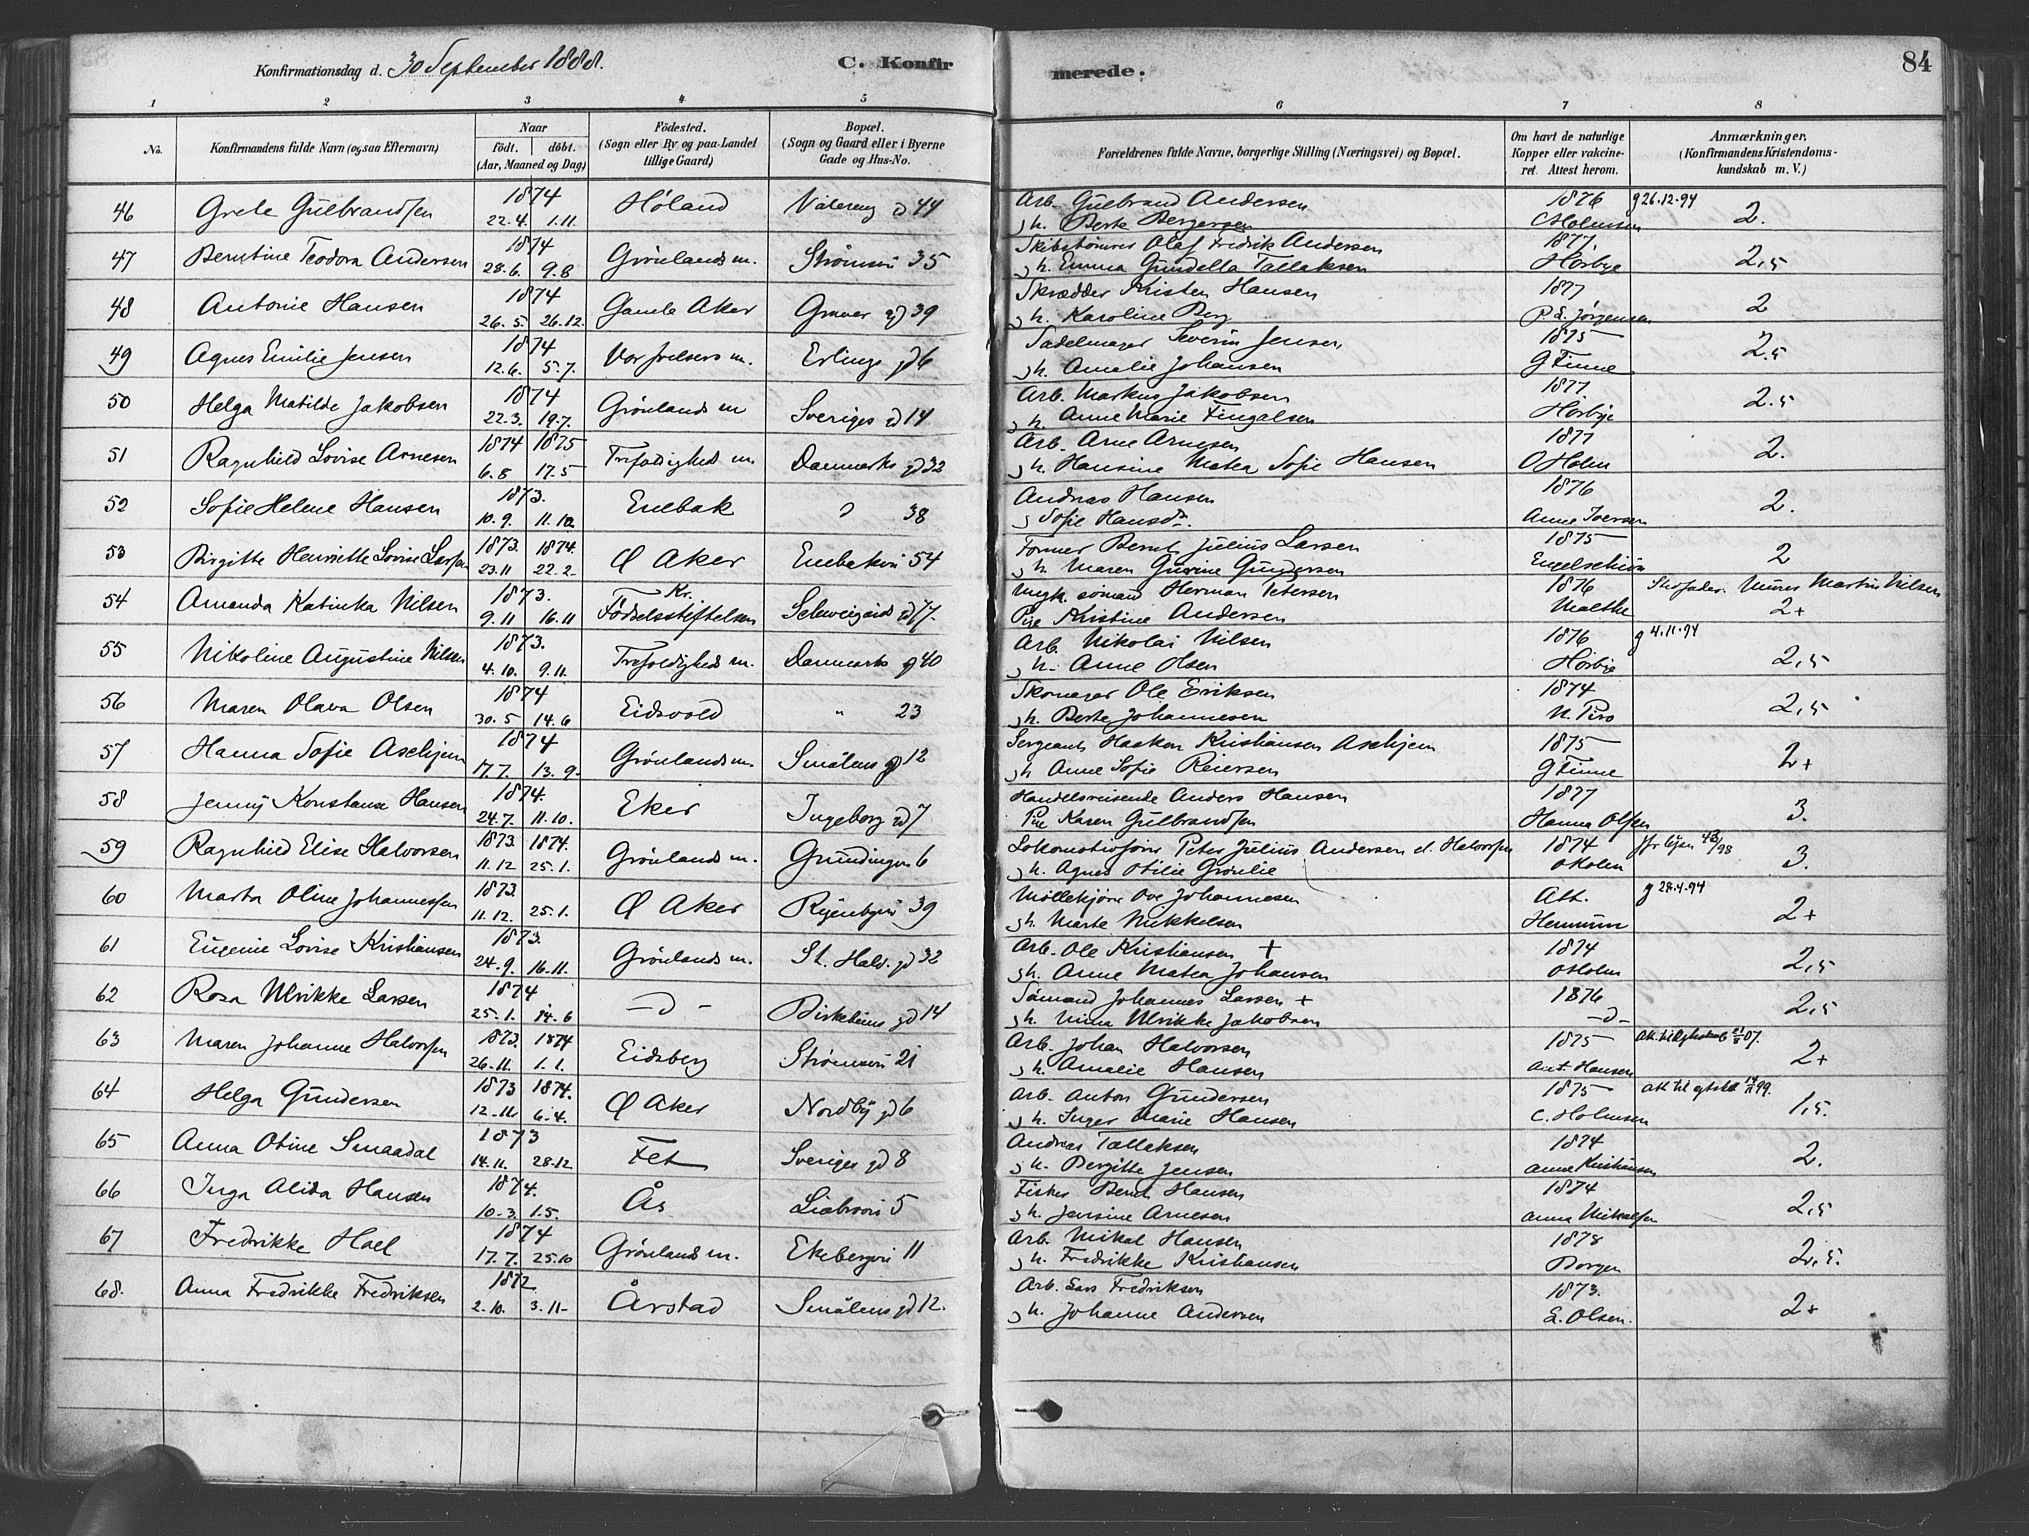 Konfirmationsdag d. 30 September 1888. C. Konfirmerede. 84
1 2 3 4 5 6 7 8
No. Konfirmandens fulde Navn (og saa Efternavn) Naar født. døbt. (Aar, Maaned og Dag) Fødested. (Sogn eller By og paa Landet tillige Gaard) Bopæl. (Sogn og Gaard eller i Byerne Gade og Hus-No. Forældrenes fulde Navne, borgerlige Stilling (Næringsvei) og Bopæl. Om havt de naturlige Kopper eller vakcineret. Attest herom. Anmærkninger. (Konfirmandens Kristendomskundskab m. V.)
46 Grete Gulbrandsen 1874 22.4. 1.11. Høland Vålereng gd 44 Arb. Gulbrand Andersen 1876 g 26.12.94
og h. Berte Bergersen C Holmsen 2.
47 Berntine Teodora Andersen 1874 28.6. 9.8 Grønlands m. Strømsvei 35 Skibstømrer Olaf Fredrik Andersen 1877.
og h. Emma Gundella Tallaksen Hørbye 2,5
48 Antonie Hansen 1874 26.5. 26.12. Gamle Aker Grover gd 39 Skrædder Kristen Hansen 1877
og h. Karoline Berg P. L. Jørgensen 2
49 Agnes Emilie Jensen 1874 12.6. 5.7. Vor frelsers m. Erlings gd 6 Sadelmager Severin Jensen 1875
og h. Amalie Johansen G Finne 2.5
50 Helga Matilde Jakobsen 1874 22.3. 19.7. Grønlands m Sveriges gd 14 Arb. Markus Jakobsen 1877
og h. Anne Marie Fingalsen Hørbye 2.5
51 Ragnhild Lovise Arnesen 1874 1875 6.8 17.5 Trefoldigheds m Danmarks gd 32 Arb. Arne Arnesen 1877
og h. Hansine Matea Sofie Hansen O Holm 2.
52 Sofie Helene Hansen 1873. 10.9. 11.10. Enebak 38 Andreas Hansen 1876
og Sofie Hansdr. Anne Iversen 2.
53 Birgitte Henriette Lovise Larsen 1873. 1874. 23.11 22.2. Ø Aker Enebakvei 54 Former Bernt Julius Larsen 1875
og h. Maren Gurine Gundersen Engelschiøn 2
54 Amanda Katinka Nilsen 1873. 9.11 16.11 Kr. Fødselsstiftelsen Schweigaards gd 77. Ungk. sømand Herman Petersen 1876 Stefader. Murer Martin Nilsen
Pige Kristine Andersen Malthe 2+
55 Nikoline Augustine Nilsen 1873. 4.10. 9.11. Trefoldigheds m. Danmarks gd 40 Arb. Nikolai Nilsen 1876 g 4.11.94
og h. Anne Olsen Hørbye 2,5
56 Maren Olava Olsen 1874 30.5 14.6 Eidsvold " 23 Skomager Ole Eriksen 1874
og h. Berte Johannesen N. Piro 2,5
57 Hanna Sofie Aschjem 1874 17.7. 13.9. Grønlands m. Smålens gd 12 Sergeant Haakon Kristiansen Aschjem 1875
og h Anne Sofie Reiersen G Finne 2+
58 Jenny Konstanse Hansen 1874. 24.7. 11.10. Eker Ingeborg gd 7 Handelsreisende Anders Hansen 1877
Pige Karen Gulbrandsen Hanna Olsen 3.
59 Ragnhild Elise Halvorsen 1873. 1874. 11.12 25.1. Grønlands m. Grundingen 6 Lokomotivfører Peter Julius Andersen el. Halvorsen 1874
og h. Agnes Otilie Grønlie O Holm 3.
60 Marta Oline Johannessen 1873. 11.12. 25.1. Ø Aker Ryenbyvei 39 Møllekjører Ove Johannesen Att. g 28.4.94
og h. Marte Mikkelsen Hemmum 2+
61 Eugenie Lovise Kristiansen 1873. 24.9. 16.11. Grønlands m. St. Halv. gd 32 Arb. Ole Kristiansen + 1874
og h. Anne Matea Johansen O Holm 2,5
62 Rosa Ulrikke Larsen 1874 25.1. 14.6 — d - Birkebeins gd 14 Sømand Johannes Larsen + 1876
og h. Nina Ulrikke Jakobsen - d - 2,5
63 Maren Johanne Halvorsen 1873. 1874 26.11. 1.1. Eidsberg Strømsvei 21 Arb. Johan Halvorsen 1875
og h. Amalie Hansen Ant. Hansen 2+
64 Helga Gundersen 1873 1874. 12.11. 6.4. Ø Aker Nordby gd 6 Arb. Anton Gundersen 1875
og h. Inger Marie Hansen C. Holmsen 1,5.
65 Anna Otine Smaadal 1873 14.11. 28.12 Fet Sveriges gd 8 Andreas Tallaksen 1874
og h. Bergitte Jensen Anne Kristiansen 2.
66 Inga Alida Hansen 1874. 10.3. 1.5. Ås Liabrovei 5 Fisker Bernt Hansen 1874
og h. Jensine Arnesen Anna Mikalsen 2,5
67 Fredrikke Hoel 1874 17.7. 25.10 Grønlands m. Ekebergvei 11 Arb. Mikal Hansen 1878
og h. Fredrikke Kristiansen Borgen 2,5.
68. Anna Fredrikke Fredriksen 1872 2.10. 3.11- Årstad Smålens gd 12. Arb. Lars Fredriksen 1873.
og h. Johanne Andersen L. Olsen. 2+